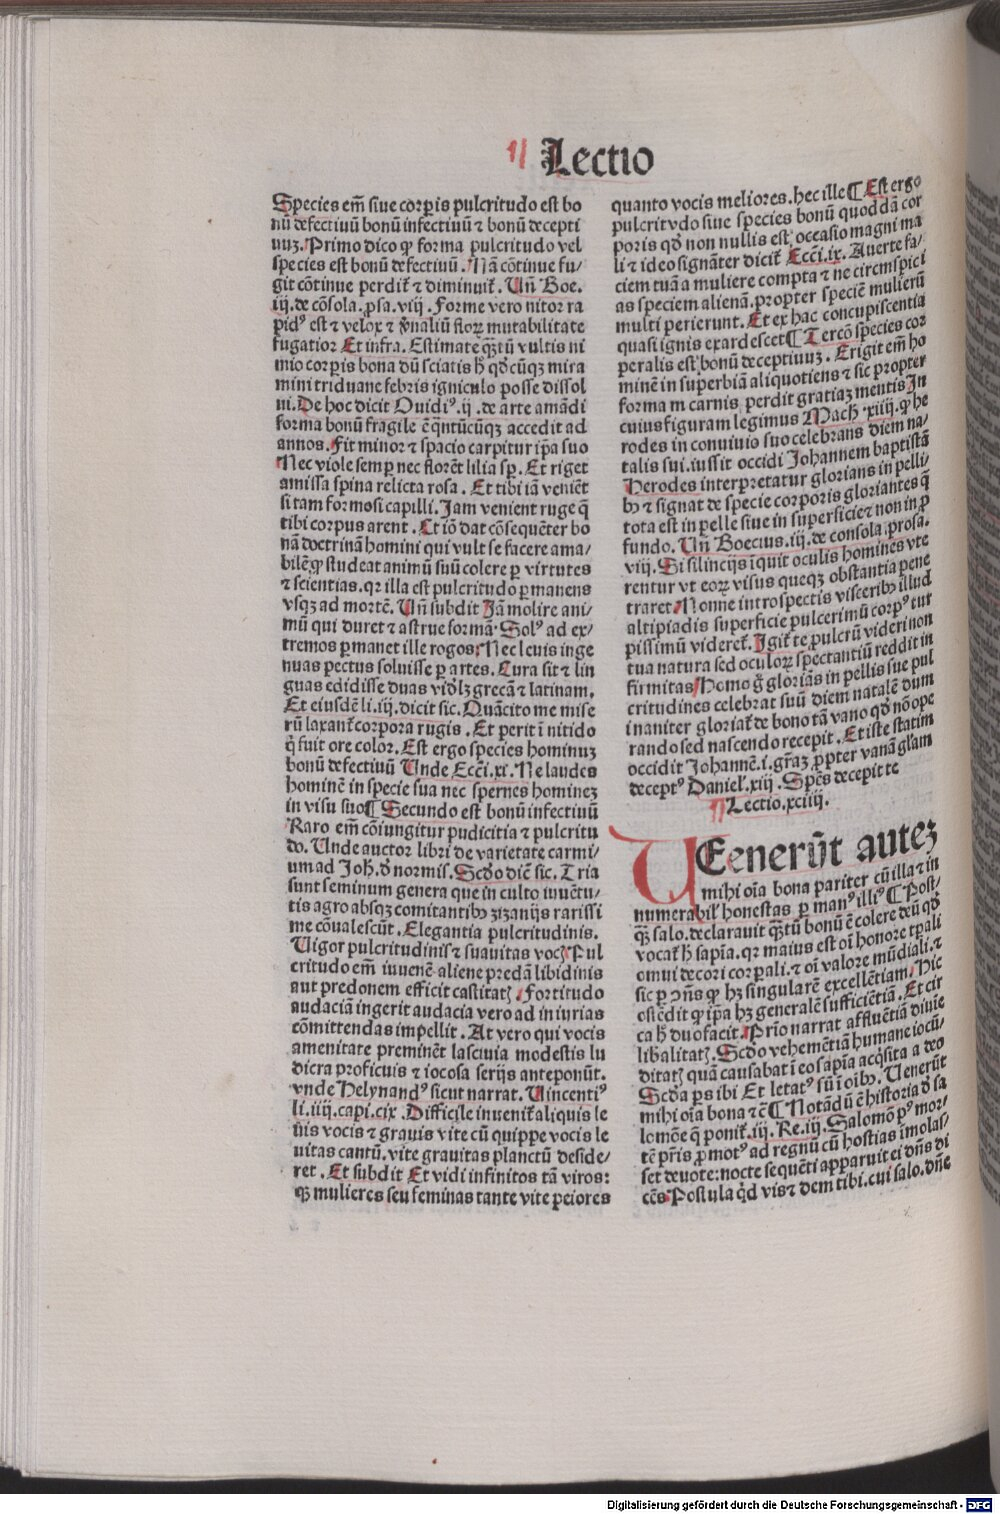 ¶ Lectio
Species em̄ siue corꝑis pulcritudo est bo
nū defectiuū bonū infectiuū ⁊ bonū decepti
uuꝫ. Primo dico ꝙ forma pulcritudo vel
species est bonū defectiuū. Nā cōtinue fu⸗
git cōtinue perdit᷑ ⁊ diminuit᷑. Un̄ Boe.
iij. de cōsola. ꝓsa. viij. Forme vero nitor ra
pidꝰ est ⁊ velox ⁊ v̉naliū floꝝ mutabilitate
fugatior Et infra. Estimate ꝙ̄tū vultis ni
mio corꝑis bona dū sciatis h̄ qd̓cūqꝫ mira
mini triduane febris igniculo posse dissol
ui. De hoc dicit Ouidiꝰ. ij. de arte amādi
forma bonū fragile ē qn̄tūcūqꝫ accedit ad
annos. Fit minor ⁊ spacio carpitur ip̄a suo
Nec viole semꝑ nec florēt lilia sꝑ. Et riget
amissa spina relicta rosa. Et tibi iā veniēt
si tam formosi capilli. Jam venient ruge q̄
tibi corpus arent. Et iō dat cōsequēter bo
nā doctrinā homini qui vult se facere ama⸗
bilē ꝙ studeat animū suū colere ꝑ virtutes
⁊ scientias. qꝛ illa est pulcritudo ꝑmanens
vsqꝫ ad mortē. Un̄ subdit Jā molire ani⸗
mū qui duret ⁊ astrue formā. Solꝰ ad ex⸗
tremos ꝑmanet ille rogos: Nec leuis inge
nuas pectus soluisse ꝑ artes. Cura sit ⁊ lin
guas edidisse duas vidꝫ grecā ⁊ latinam.
Et eiusdē li. iij. dicit sic. Quācito me mise
rū laxant᷑ corpora rugis. Et perit ī nitido
q̄ fuit ore color. Est ergo species hominuꝫ
bonū defectiuū Unde Ecci̅. xi. Ne laudes
hominē in specie sua nec spernes homineꝫ
in visu suo ¶ Secundo est bonū infectiuū
Raro em̄ cōiungitur pudicitia ⁊ pulcritu
do. Unde auctor libri de varietate carmi⸗
um ad Joh. d̓ normis. Scd̓o diē sic. Tria
sunt seminum genera que in culto iuuētu⸗
tis agro absqꝫ comitantibꝫ zizanijs rarissi
me cōualescūt. Elegantia pulcritudinis.
Uigor pulcritudinis ⁊ suauitas voc. Pul
critudo em̄ iuuenē aliene predā libidinis
aut predonem efficit castitat. Fortitudo
audaciā ingerit audacia vero ad iniurias
cōmittendas impellit. At vero qui vocis
amenitate preminēt lasciuia modestis lu
dicra proficuis ⁊ iocosa serijs anteponūt.
vnde Helynandꝰ sicut narrat. Uincentiꝰ
li. iiij. capi. cix. Difficile inuenit᷑ aliquis le
uis vocis ⁊ grauis vite cū quippe vocis le
uitas cantū. vite grauitas planctū deside⸗
ret. Et subdit Et vidi infinitos tā viros:
ꝙ mulieres seu feminas tante vite peiores
quanto vocis meliores. hec ille ¶ Est ergo
pulcritvdo siue species bonū quoddā cor
poris qd̓ non nullis est occasio magni ma
li ⁊ ideo signāter dicit᷑ Ecci̅. ix. Auerte fa⸗
ciem tuā a muliere compta ⁊ ne circūspici
as speciem alienā. propter speciē mulierū
multi perierunt. Et ex hac concupiscentia
quasi ignis exardescet ¶ Tercō species cor
peralis est bonū deceptiuuꝫ. Erigit em̄ ho
minē in superbiā aliquotiens ⁊ sic propter
forma m carnis perdit gratiaꝫ mentis In
cuius figuram legimus Mach. xiiij. ꝙ he
rodes in conuiuio suo celebrans diem na⸗
talis sui. iussit occidi Johannem baptistā
Herodes interpretatur glorians in pelli⸗
bꝫ ⁊ signat de specie corporis gloriantes q̄
tota est in pelle siue in superficie ⁊ non in ꝓ
fundo. Un̄ Boecius. iij. de consola. prosa.
viij. Si silincijs īquit oculis homines vte
rentur vt eoꝝ visus queqꝫ obstantia pene
traret. Nonne introspectis visceribꝫ illud
altipiadis superficie pulcerimū corpꝰ tur
pissimū videret᷑. Igit᷑ te pulcrū videri non
tua natura sed oculoꝝ spectantiū reddit in
firmitas. Homo g̊ gloriās in pellis sue pul
critudines celebrat suū diem natalē dum
inaniter gloriat᷑ de bono tā vano qd̓ nō ope
rando sed nascendo recepit. Et iste statim
occidit Johannē. i. gr̄aꝫ propter vanā gl̄am
deceptꝰ Daniel̓. xiij. Spēs decepit te
¶ Lectio. xciiij.
UEenerūt auteꝫ
mihi oīa bona pariter cū illa ⁊ in
numerabil̓ honestas ꝑ manꝰ illiꝰ ¶ Post⸗
ꝙꝫ salo. declarauit ꝙ̄tū bonū ē colere deū qd̓
vocat᷑ h̄ sapīa. qꝛ maius est oī honore tꝑali
omui decori corꝑali. ⁊ oī valore mūdiali. ⁊
sic ꝑ ꝯn̄s ꝙ hꝫ singularē excellētiam. Hic
ostēdit ꝙ ip̄a hꝫ generalē sufficiētiā. Et cir
ca h̄ duo facit. Prīo narrat affluētiā diuīe
libalitat. Scd̓o vehemētiā humane iocū⸗
ditat quā causabat ī eo sapīa acq̄sita a deo
Scd̓a ꝑs ibi Et letatꝰ sū ī oībꝫ. Uenerūt
mihi oīa bona ⁊c̄ ¶ Notādū ē historia d̓ sa
lomōe q̄ ponit᷑. iij. Re. iij. Salomō pꝰ mor⸗
tē pr̄is ꝓmotꝰ ad regnū cū hostias īmolas⸗
set deuote: nocte sequēti apparuit ei dn̄s di
cēs. Postula qd̓ vis ⁊ dem tibi. cui salo. dn̄e
Digitalisierung gefördert durch die Deutsche Forschungsgemeinschaft - DFG